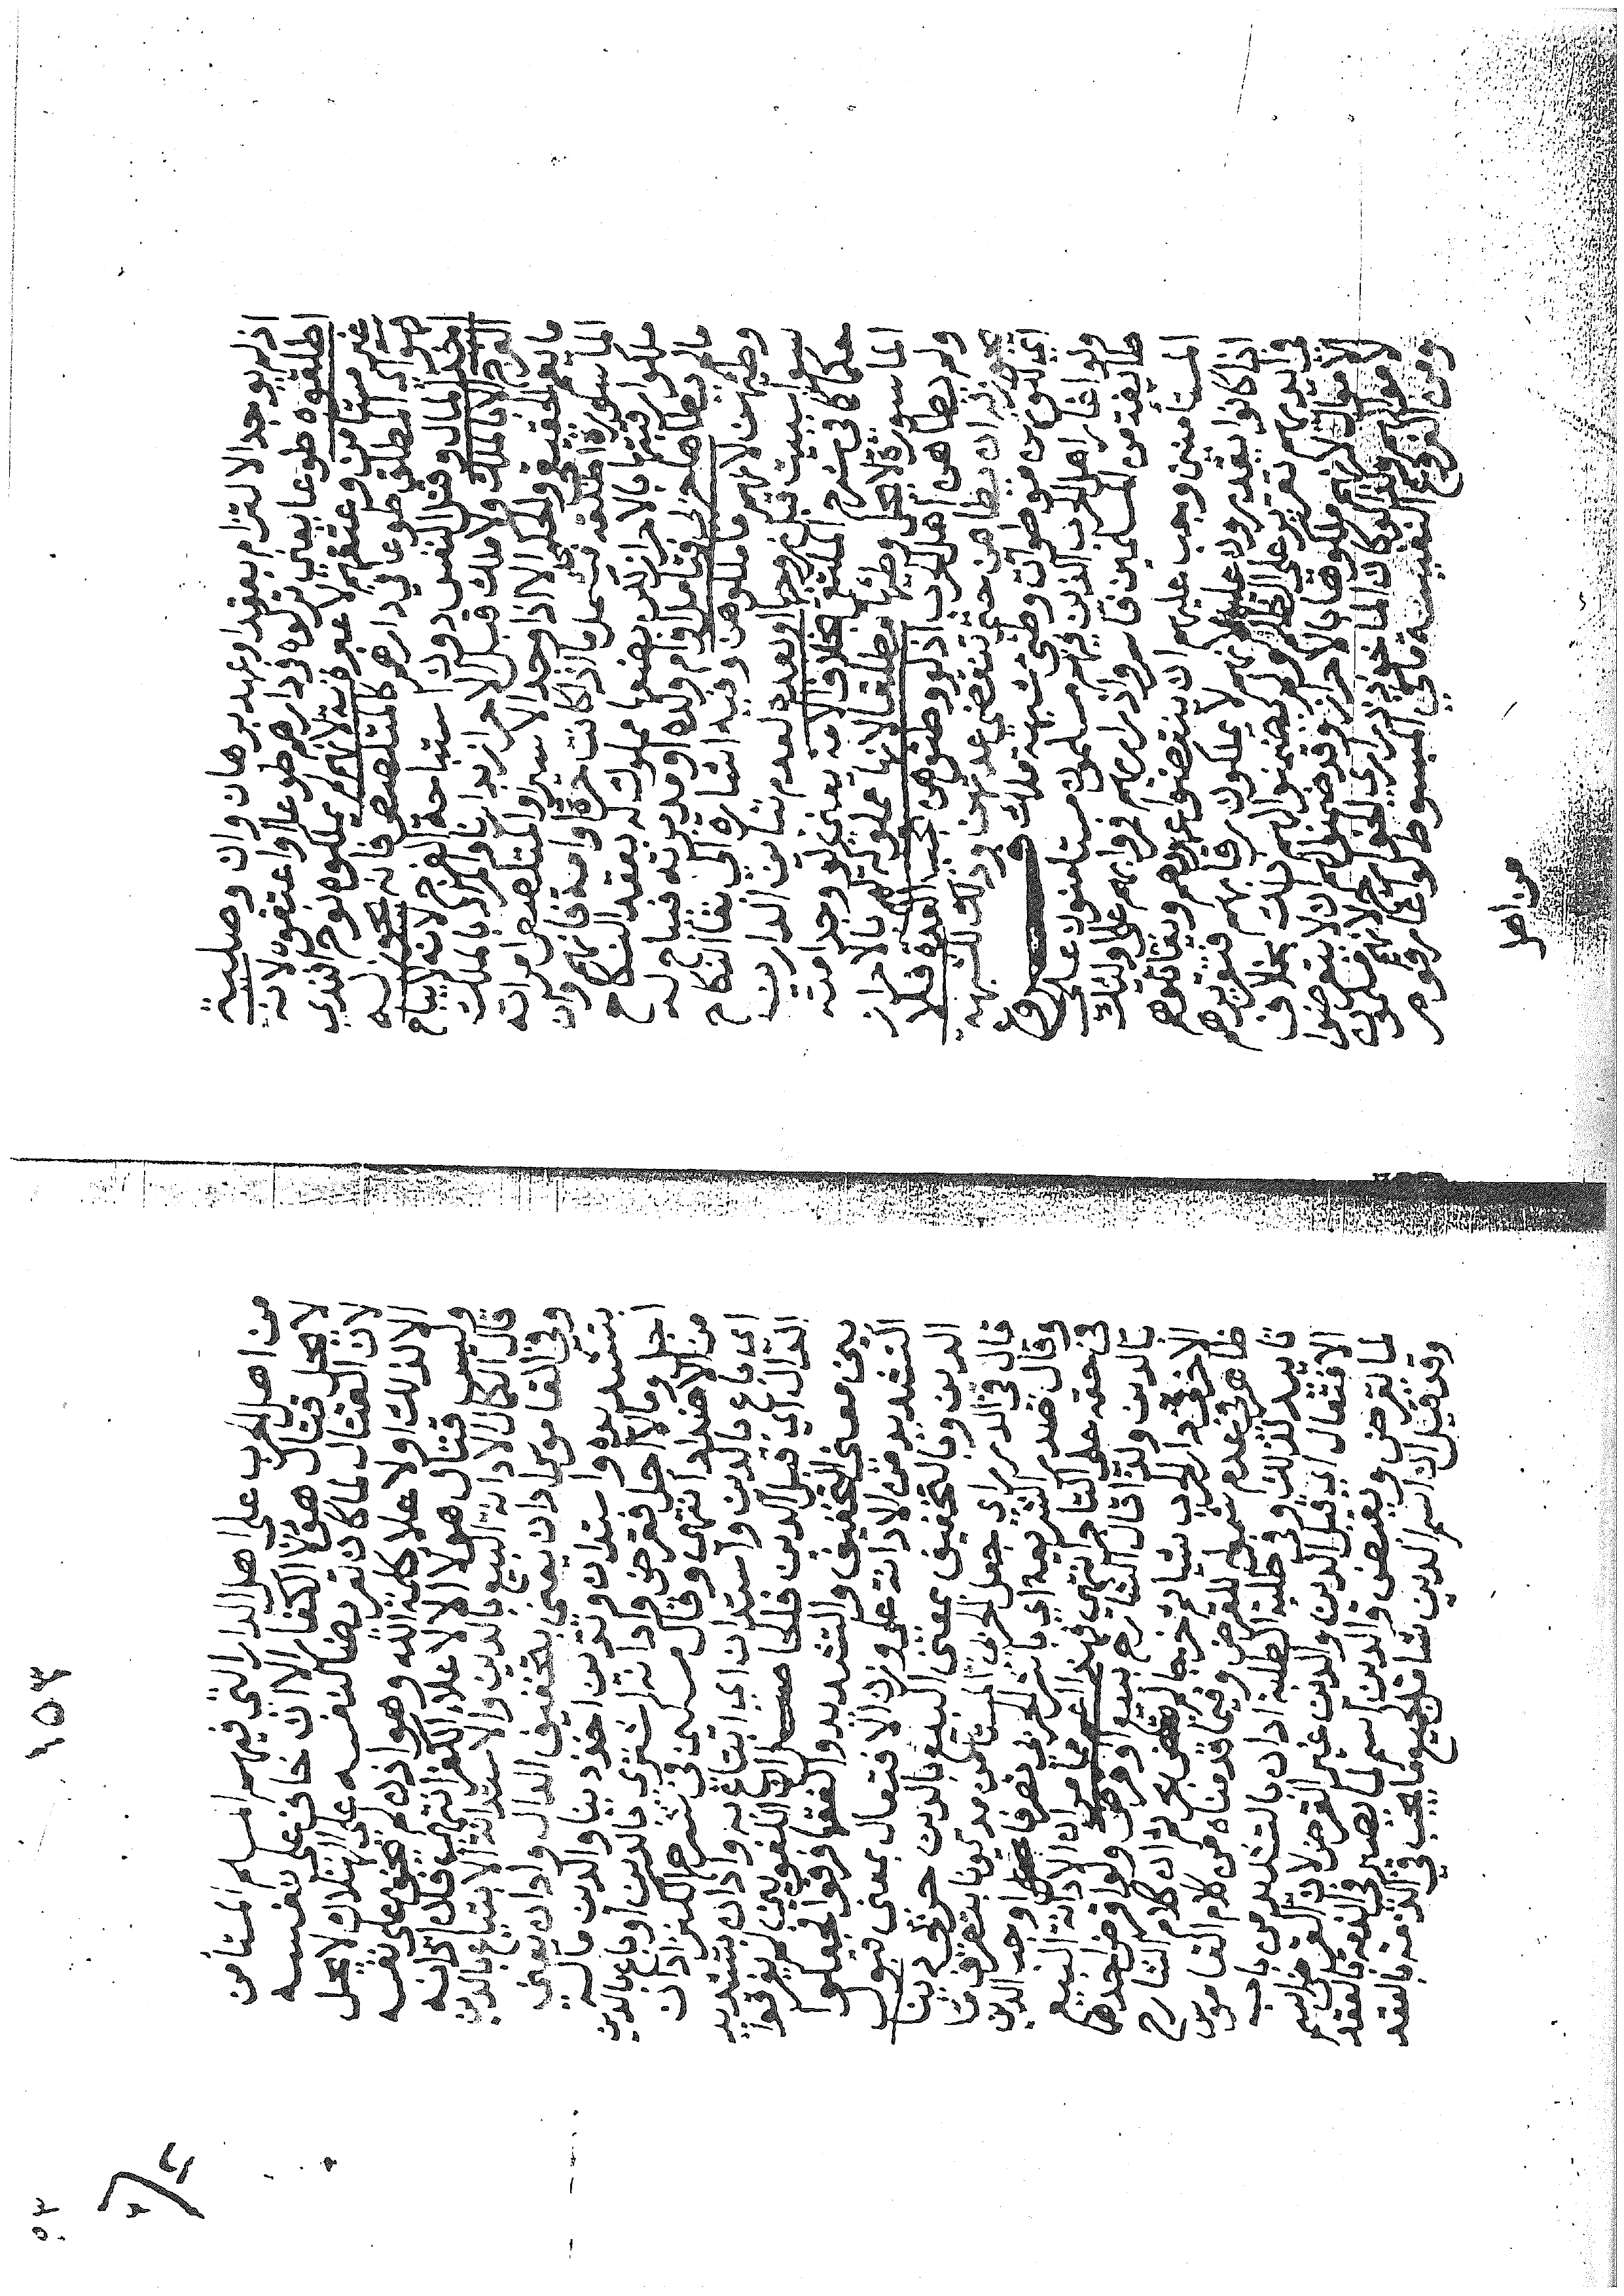 اذ لم يوجد الالتزام بعقد او عهد برهان وان وصلية
اطلقوه طوعا يعني تركوه في دارهم طوعا او اعتقوه لانه
غير مستأمن وعتقهم لا عبرة به لانهم لم يملكوه لنوح افندي
هو اي المطلق طوعا في دارهم كالمتلصص فانه يجوز له
اخذ المال وقتل النفس دون استباحة الفرج لانه لا يباح
الفرج الا بالملك ولا ملك قبل الاحراز بدارنا والمراد بالملك
ما يعم الحقيقي والحكمي الا اذا وجد الاسير او المتلصص امراته
الماسورة اطلقه بنت على ما اذا كانت حرة او امة فانهم وان
ملكوا رقبتها بالاحراز لكن بضعها مملوك له بعقد النكاح
ما لم يطأها اهل حرب فتأمل او ام ولده او مدبرته فيباح له
وطئهن لانهم ما ملكوهن وفيه اشارة الى بقاء النكاح
سواء سبيت قبل زوجها او بعده لعدم تباين الدارين
هكذا في شرح الملتقى بخلاف الامة يعني لو وجد امته
الماسورة لا يحل وطئها مطلقا لانها مملوكة لهم بالاحراز
ولم يطأهن اهل الحرب اذ لو وطئوهن تجب العدة فلا
يجوز له ان يطأهن حتى تنقضي عدتهن وذلك للشبهة
اي لكونهن موطوآت وطئ شبهة ملك فروع
ولو اغار اهل الحرب الذين فيهم مسلمون مستأمنون على
طائفة من المسلمين فاسروا ذراريهم فمروا بهم على اولئك
المستأمنين وجب عليهم ان ينقضوا عهدهم ويقاتلوهم
اذا كانوا يقدرون عليه لانهم لا يملكون رقابهم فتقريرهم
في ايديهم تقرير على الظلم ولم يضمنوا لهم ذلك بخلاف
الاموال لانهم ملكوها بالاحراز وقد ضمنوا لهم ان لا يتعرضوا
لاموالهم وكذا لو كان الماخوذ ذراري الخوارج لانهم مسلمون
ومن الفروع النفيسة ما في المبسوط لو اغار قوم
من اهل

١٥٣
من اهل الحرب على اهل الدار التي فيهم المسلم المستأمن
لا يحل قتال هؤلاء الكفار الا ان خاف على نفسه
لان القتال لما كان تعريضا لنفسه على الهلاك لا يحل
الا لذلك او لاعلاء كلمة الله وهو اذا لم يخف على نفسه
وليس قتال هؤلاء الا لاعلاء الكفر انتهى فلو ادانه
قال الكمال الادانة البيع بالدين والاستدانة الابتياع بالدين
وفي القاموس ادان يعني بتخفيف الدال وادان يعني
بتشديده واستدان وتدين اخذ دينا والدين ماله
اجل وما لا اجل فقرض وادانه اشترى بالدين او باع بالدين
من الاضداد انتهى وقال مسكين في شرح الكنز ادان
اي باع بالدين واستدان اي ابتاع به وادان بتشديد
الدال اي قبل الدين فالحاصل ان اللغويين لم يفرقوا
بين معنى التخفيف والتشديد والفقهاء فرقوا فجعلوا
التشديد من الادانة على وزن الافتعال بمعنى قبول
الدين وبالتخفيف بمعنى البيع بالدين حربي دينا
قال في الدرر اي جعل الحربي المستأمن مديونا بتصرف ما
وقال صدر الشريعة اي باشر الحربي تصرفا اوجب الدين
في حقه على التاجر انتهى فهذا اعم مما مر ان الادانة البيع
بالدين ولذا قال الشارح ببيع او قرض ولو اقرض احدهما
الاخر في دار الحرب شيأ ثم خرجا لم يقض به ثم ان كلام الشارح
ظاهر في عدم شمول للقرض وفيما قدمناه من كلام القاموس
تأييد لذلك وفي طلبة الطلبة ادان بالتشديد من باب
الافتعال اي قبل الدين والدين غير القرض لان القرض اسم
لما يقرض ويقبض والدين اسم لما يصير في الذمة بالعقد
وقد قيل ان اسم الدين شامل لجميع ما يجب في الذمة بالعقد